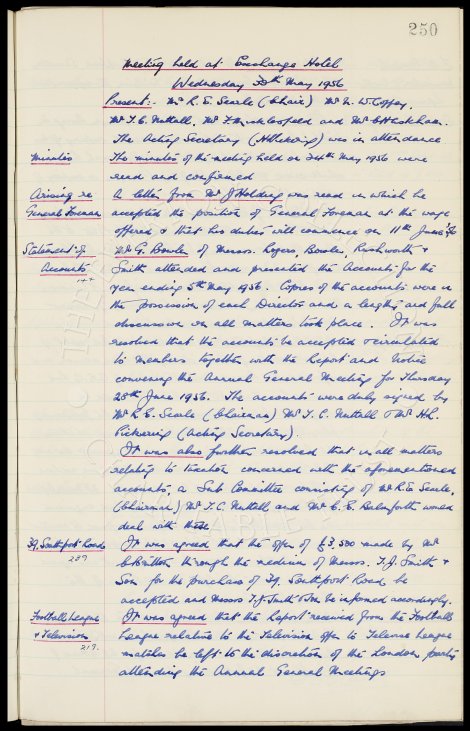 250
Meeting held at Exchange Hotel
Wednesday 30th May 1956
Present:- Mr R. E. Searle (Chair) Mr W.
Mr T. C. Nuttall, Mr and Mr
The Acting Secretary (H R Pickering) was in attendance
Minutes The minutes of the meeting held on 24th May 1956 were
read and confirmed
Arising re A letter from Mr J Holding was read in which he
General Foreman accepted the position of General Foreman at the wage
offered & that his duties will commence on 11th June
Statement of Mr G. Bowler of Messrs. Rogers, Bowler, Rushworth &
Accounts Smith attended and presented the Accounts for the
year ending 5th May 1956. Copies of the accounts were in
the possession of each Director and a lengthy and full
discussion on all matters took place. It was
resolved that the accounts be accepted & circulated
to members together with the Report and Notice
convening the Annual General Meeting for Thursday
28th June 1956. The accounts were duly signed by
Mr R. E. Searle (Chairman) Mr T. C. Nuttall & Mr H.R.
Pickering (Acting Secretary).
It was also further resolved that in all matters
relating to taxation concerned with the aforementioned
accounts, a Sub Committee consisting of Mr R.E. Searle,
(Chairman) Mr T. C. Nuttall and Mr C. E. would
deal with these
39, Southport Road It was agreed that the offer of £3,500 made by Mr
239 Britton through the medium of Messrs. T. J. Smith &
Son for the purchase of 39, Southport Road be
accepted and Messrs T. J. Smith & Son be informed accordingly.
Football League It was agreed that the Report received from the Football
& Television League relative to the Television offer to Televise League
217. matches be left to the discretion of the London party
attending the Annual General Meetings